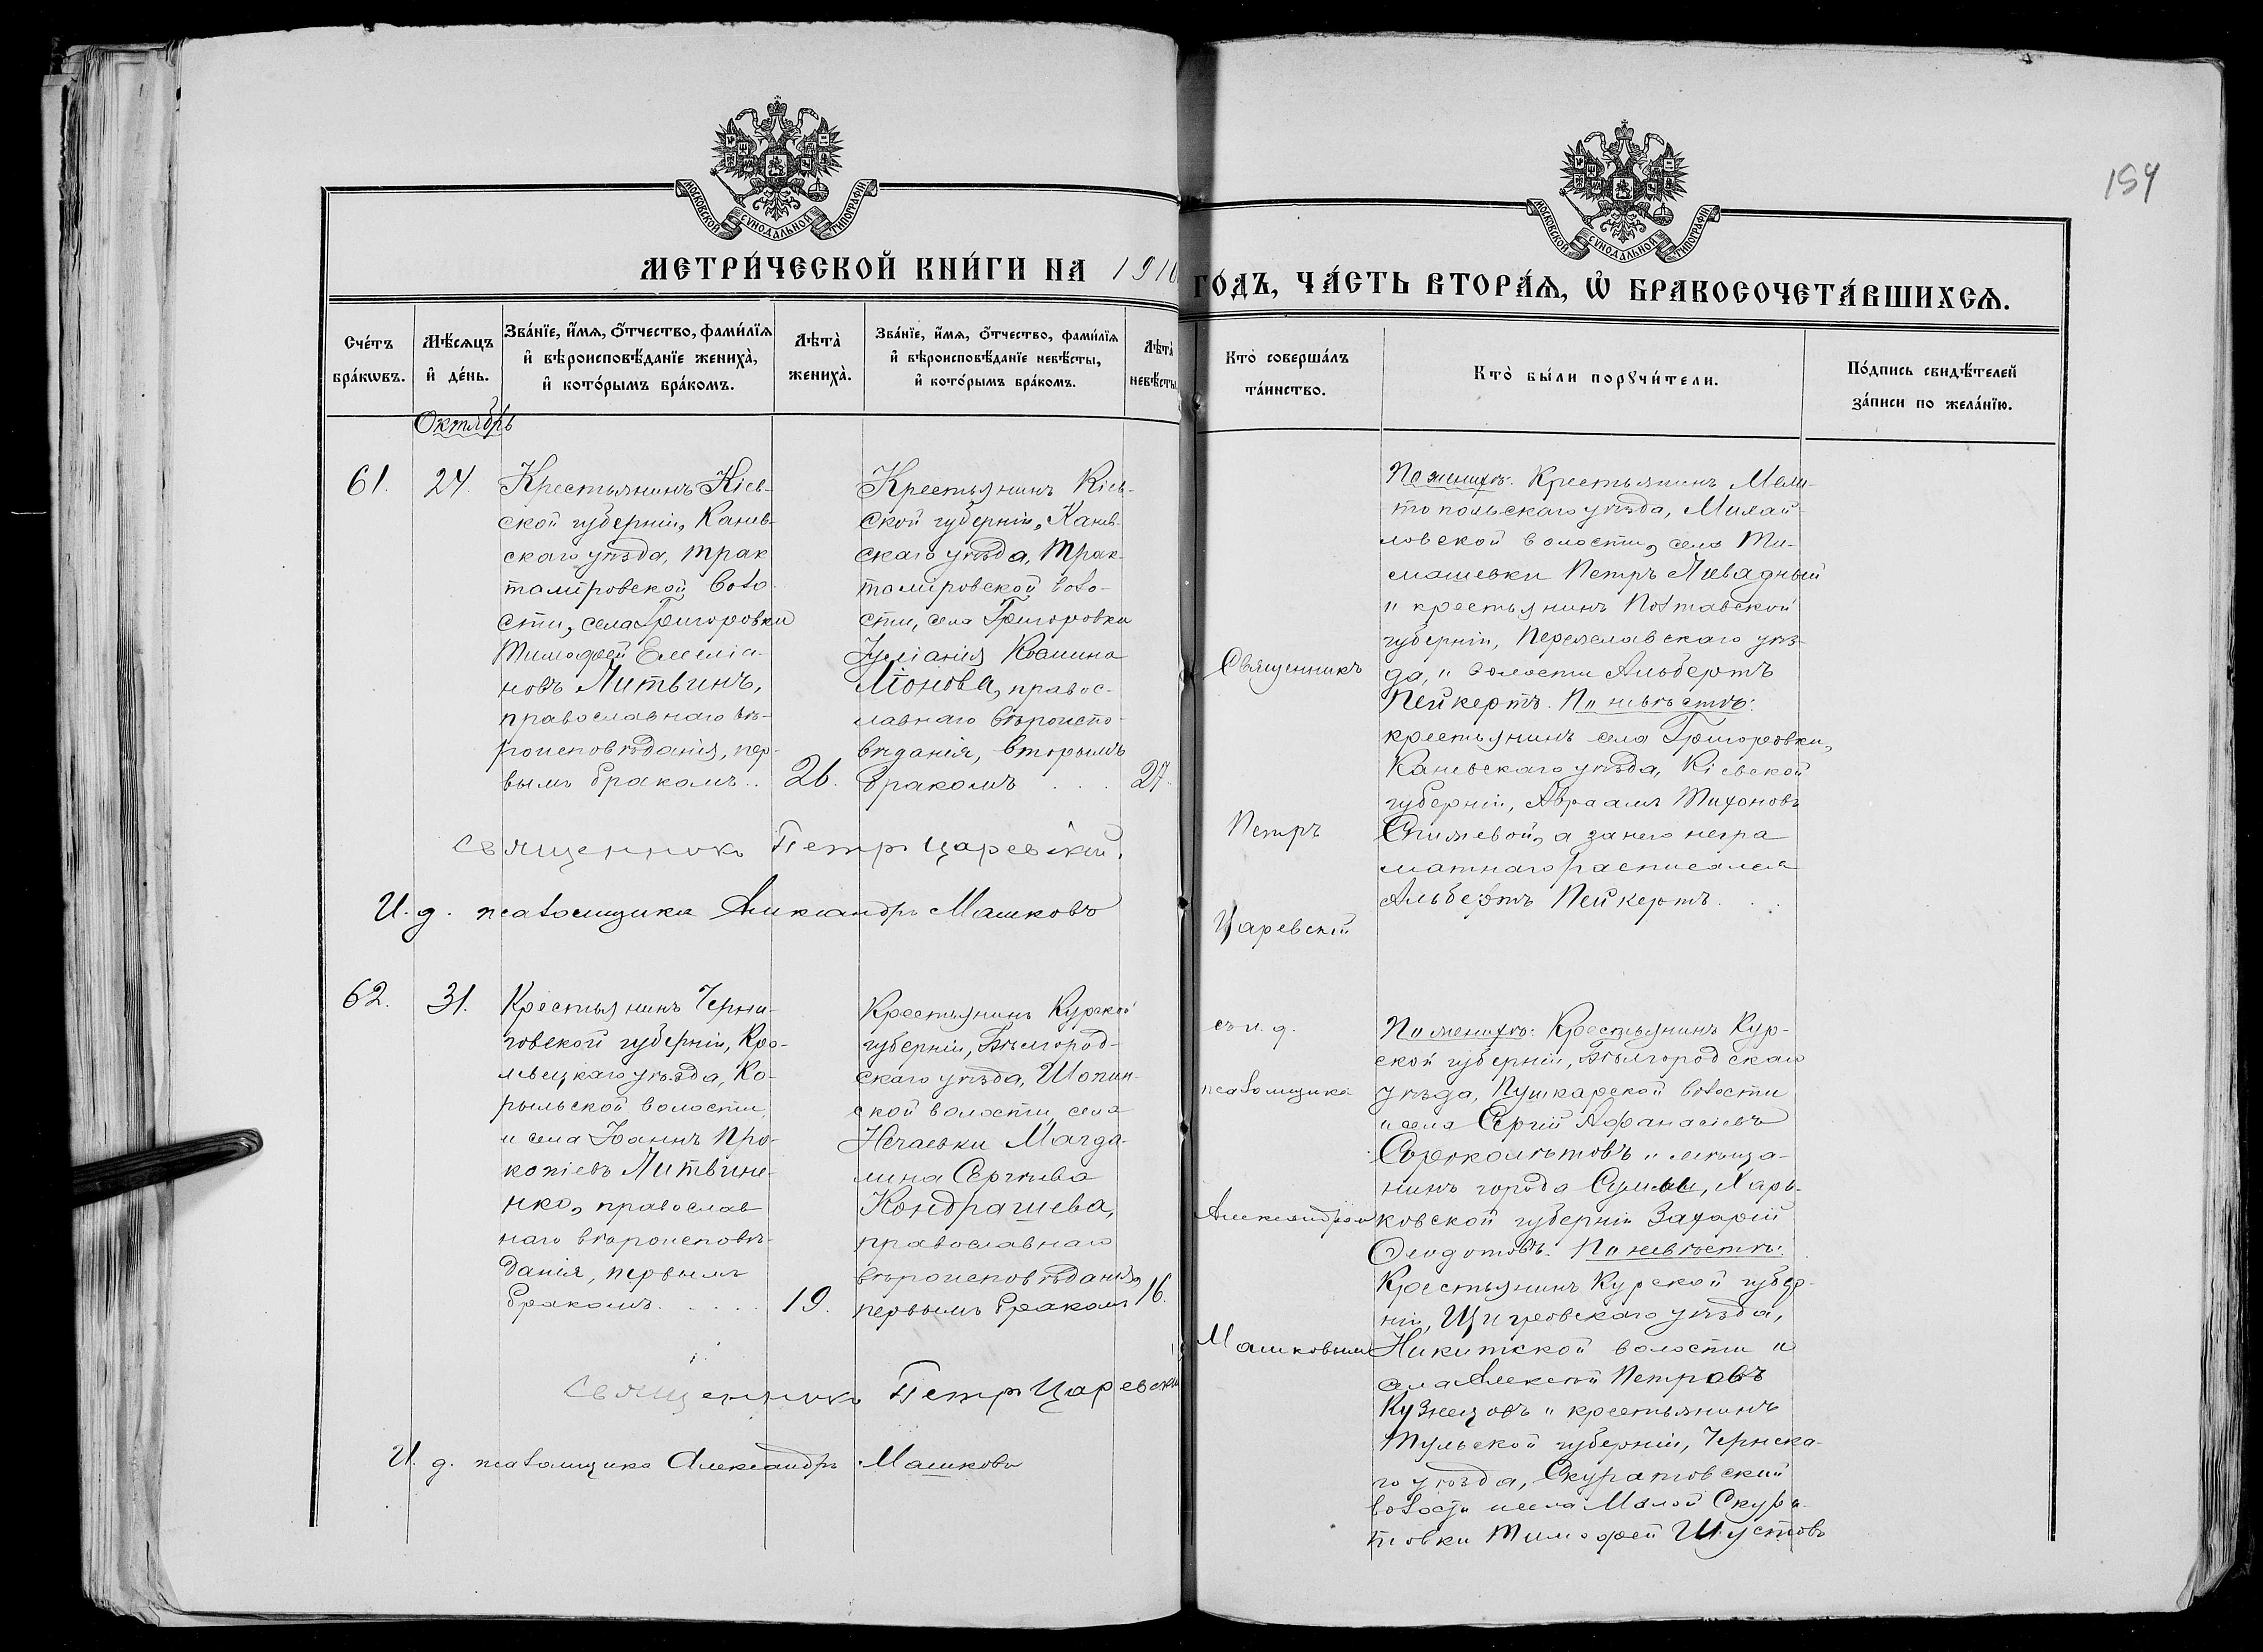 154
МОСКОВСКОЙ СУНОДАЛЬНОЙ ТИПОГРАФІИ
МОСКОВСКОЙ СУНОДАЛЬНОЙ ТИПОГРАФІИ
МЕТРИ́ЧЕСКОЙ КНИ́ГИ НА 1910
ГО́ДЪ, ЧА́СТЬ ВТОРА́Ѧ, Ѡ҆ БРАКОСОЧЕТА́ВШИХСѦ.
Сче́тъ
бра́кѡвъ.
Мѣ́сѧцъ
и҆ де́нь.
Зва́нїе, и҆́мѧ, ѻ҆́тчество, фами́лїѧ
и҆ вѣроисповѣ́данїе жениха̀,
и҆ кото́рымъ бра́комъ.
Лѣта̀
жениха̀.
Зва́нїе, и҆́мѧ, ѻ҆́тчество, фами́лїѧ
и҆ вѣроисповѣ́данїе невѣ́сты,
и҆ кото́рымъ бра́комъ.
Лѣта̀
невѣ́сты
Кто̀ соверша́лъ
та́инство.
Кто̀ бы́ли порꙋчи́тели.
По́дпись свидѣ́телей
за́писи по жела́нїю.
Октябрь
61.
24.
Крестьянинъ Кіев-
ской губерніи, Канев-
скаго уѣзда, Трак
томіровской воло
сти, села Григоровки
Тимофей Емеліа-
новъ Литвинъ,
православнаго вѣ-
роисповѣданія, пер-
вымъ бракомъ..
26.
Крестьянинъ Кіев-
ской губерніи, Канев-
скаго уѣзда, Трак-
томіровской воло-
сти, села Григоровки
Іуліанія
Ліонова, правос-
лавнаго вѣроиспо-
вѣданія, вторымъ
бракомъ . . .
27.
Священникъ
Петръ
Царевскій
По женихѣ: Крестьянинъ Мели-
топольскаго уѣзда, Михай-
ловской волости, села Ти-
мошевки Петръ Левадный
и крестьянинъ Полтавской
губерніи, Переяславскаго уѣз-
да, и волости Альбертъ
Пейкертъ. По невѣстѣ:
крестьянинъ села Григоровки,
Каневскаго уѣзда, Кіевской
губерніи, Авраамъ Тихоновъ
а за него негра
мотнаго расписался
Альбертъ Пейкертъ . .
Священникъ Петръ Царевскій.
И. д. псаломщика Александръ Машковъ
62.
31.
Крестьянинъ Черни-
говской губерніи, Кро-
левецкаго уѣзда, Ко-
рыльской волости
и села Іоаннъ Про-
копіевъ Литвине-
нко, православ
наго вѣроисповѣ-
данія, первымъ
бракомъ . . . . .
19.
Крестьянинъ Курской
губерніи, Бѣлгород-
скаго уѣзда, Шопин-
ской волости, села
Нечаевки Магда-
лина Сергѣева
Кондрашева,
православнаго
вѣроисповѣданія,
первымъ бракомъ
16.
съ и. д.
псаломщика
Александромъ
Машковымъ
По женихѣ: Крестьянинъ Кур-
ской губерніи, Бѣлгородскаго
уѣзда, Пушкарской волости
и села Сергій Афанасіевъ
Сороколѣтовъ и мѣща-
нинъ города Сумы, Харь-
ковской губерніи Захарій
Ѳеодотовъ. По невѣстѣ:
Крестьянинъ Курской губер-
ніи, Щигровскаго уѣзда,
Никитской волости и
села Алексѣй Петровъ
Кузнецовъ и крестьянинъ
Тульской губерніи, Чернска-
го уѣзда, Скуратовской
волости и села Малой Скура-
товки Тимофей Шустовъ
Священникъ Петръ Царевскій
И. д. псаломщика Александръ Машковъ